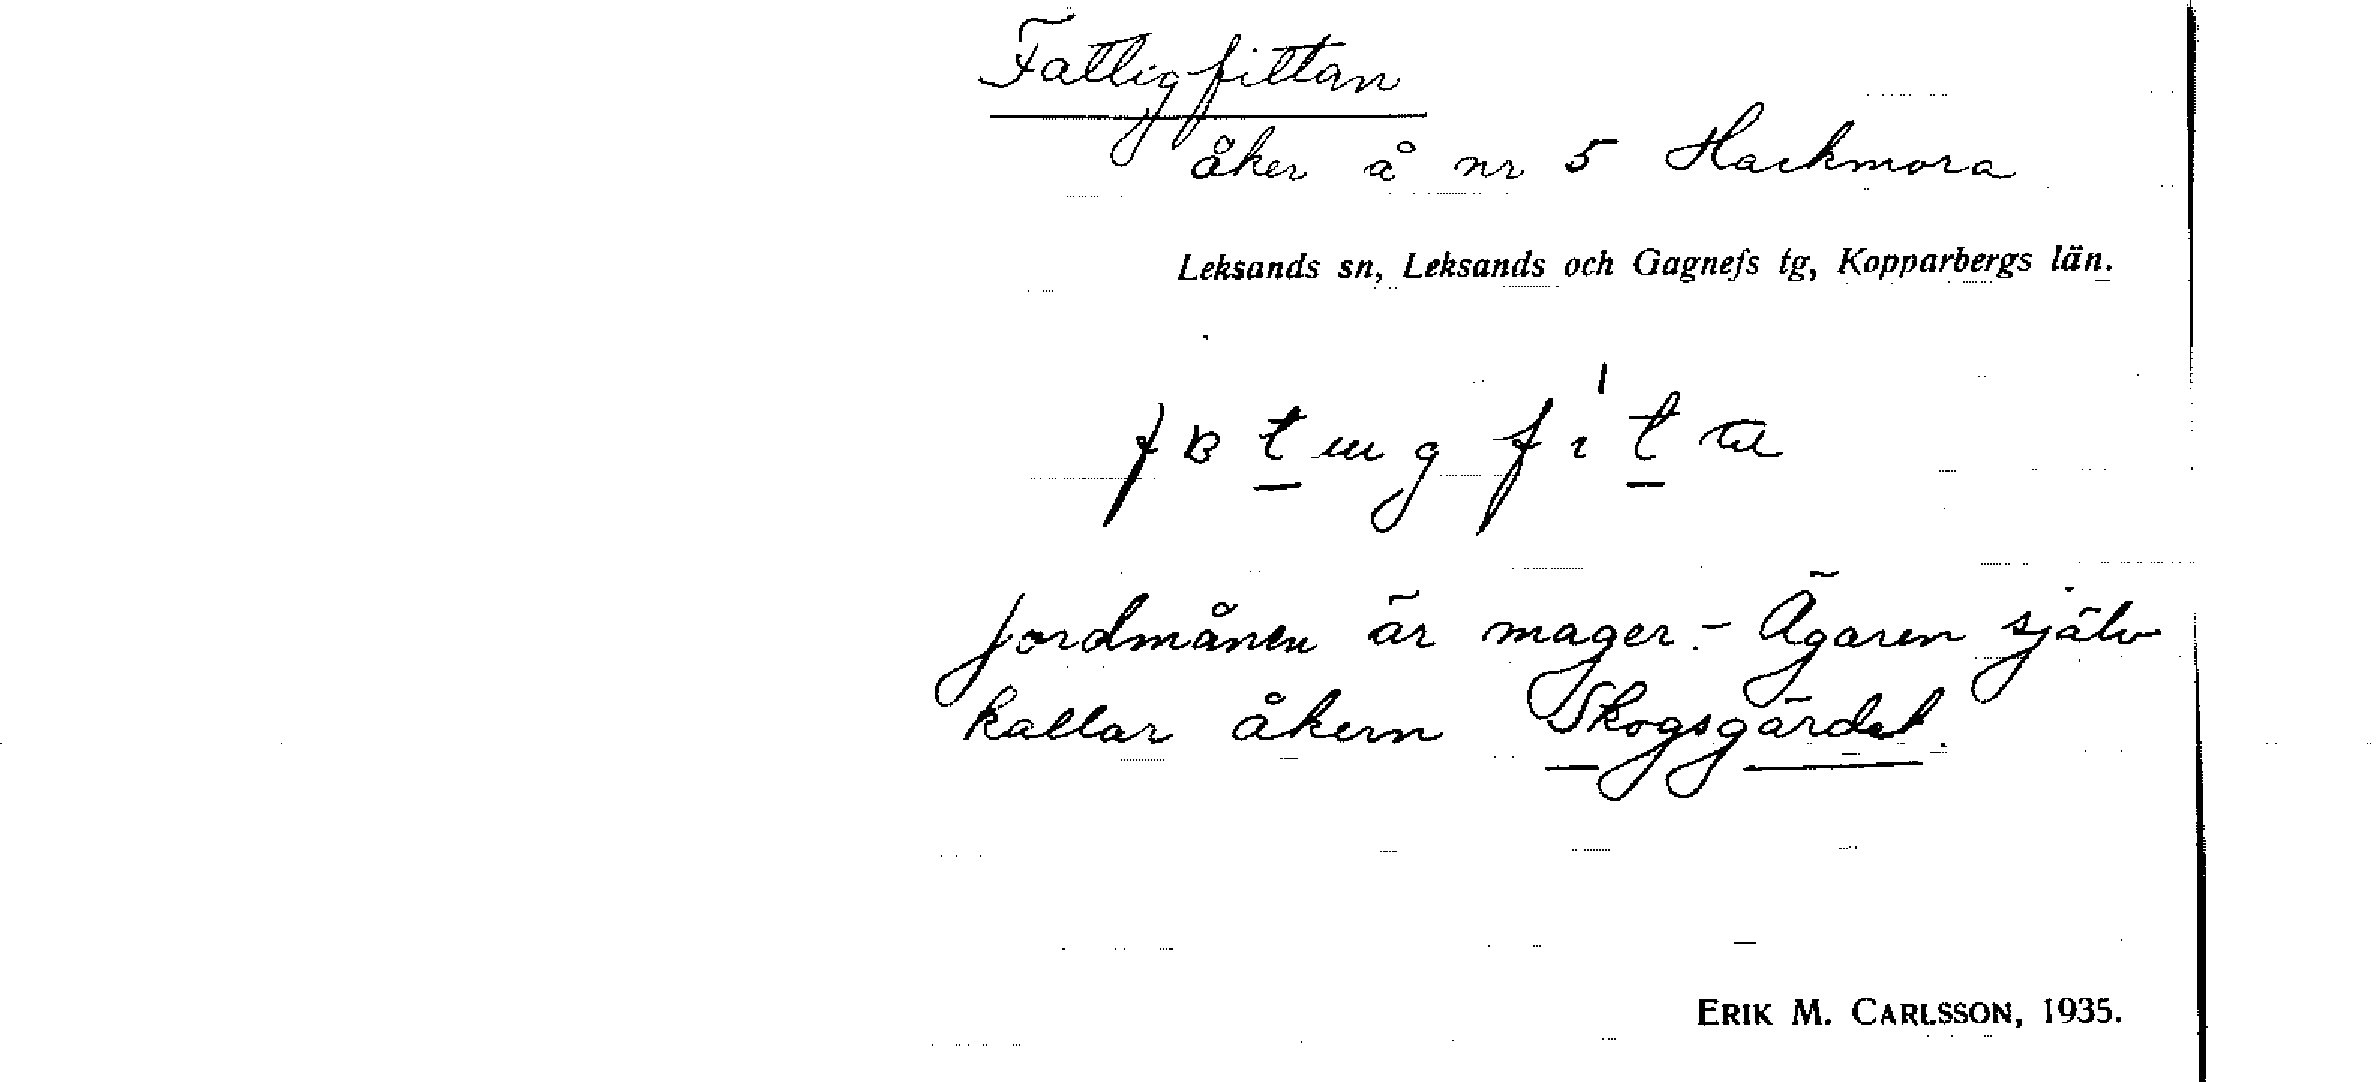 Fattigfittan
åker å nr 5 Hackmora
Leksands sn, Leksands och Gagnefs tg, Kopparbergs län.
Jordmånen är mager. - Ägaren själv
kallar åkern Skogsgärdet.
ERIK M. CARLSSON, 1935.